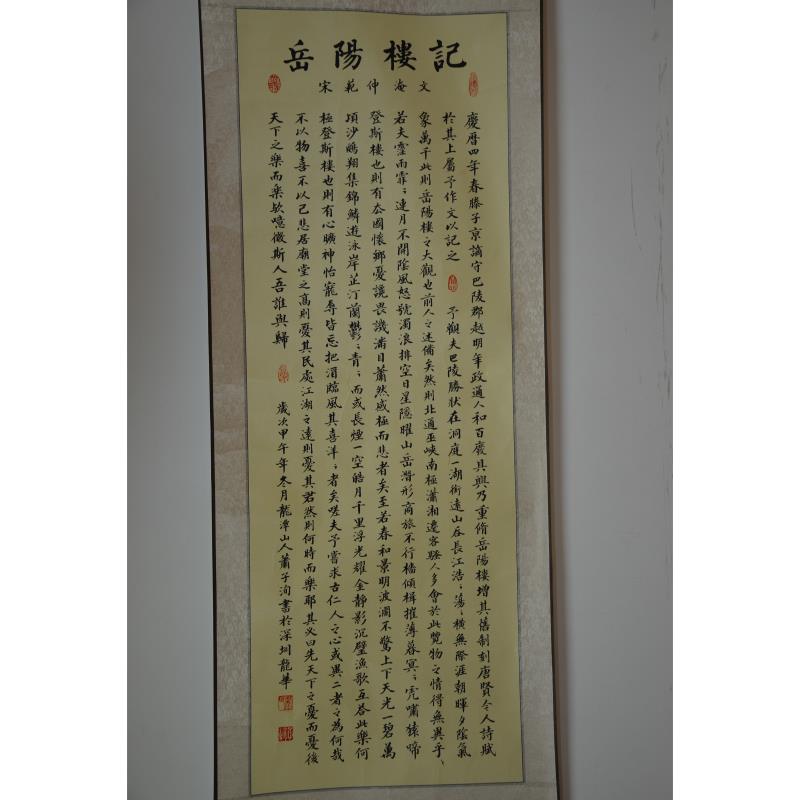 岳陽樓記
宋範仲淹文
慶曆四年春滕子京謫守巴陵郡越明年政通人和百廢具興乃重脩岳陽樓增其舊制刻唐賢今人詩賦
於其上屬予作文以記之 予觀夫巴陵勝狀在洞庭一湖銜遠山吞長江浩〻蕩〻橫無際涯朝暉夕陰氣
象萬千此則岳陽樓之大觀也前人之述備矣然則北通巫峽南極瀟湘遷客騷人多會於此覽物之情得無異乎
若夫霪雨霏〻連月不開陰風怒號濁浪排空日星隱曜山岳潛形商旅不行檣傾楫摧薄暮冥〻虎嘯猿啼
登斯樓也則有去國懷鄉憂讒畏譏滿目蕭然感極而悲者矣至若春和景明波瀾不驚上下天光一碧萬
頃沙鷗翔集錦鱗遊泳岸芷汀蘭鬱〻青〻而或長煙一空皓月千里浮光耀金靜影沉璧漁歌互答此樂何
極登斯樓也則有心曠神怡寵辱皆忘把酒臨風其喜洋〻者矣嗟夫予嘗求古仁人之心或異二者之為何哉
不以物喜不以己悲居廟堂之高則憂其民處江湖之遠則憂其君然則何時而樂耶其必曰先天下之憂而憂後
天下之樂而樂歟噫微斯人吾誰與歸 歲次甲午年冬月龍潭山人蕭子洵書於深圳龍華